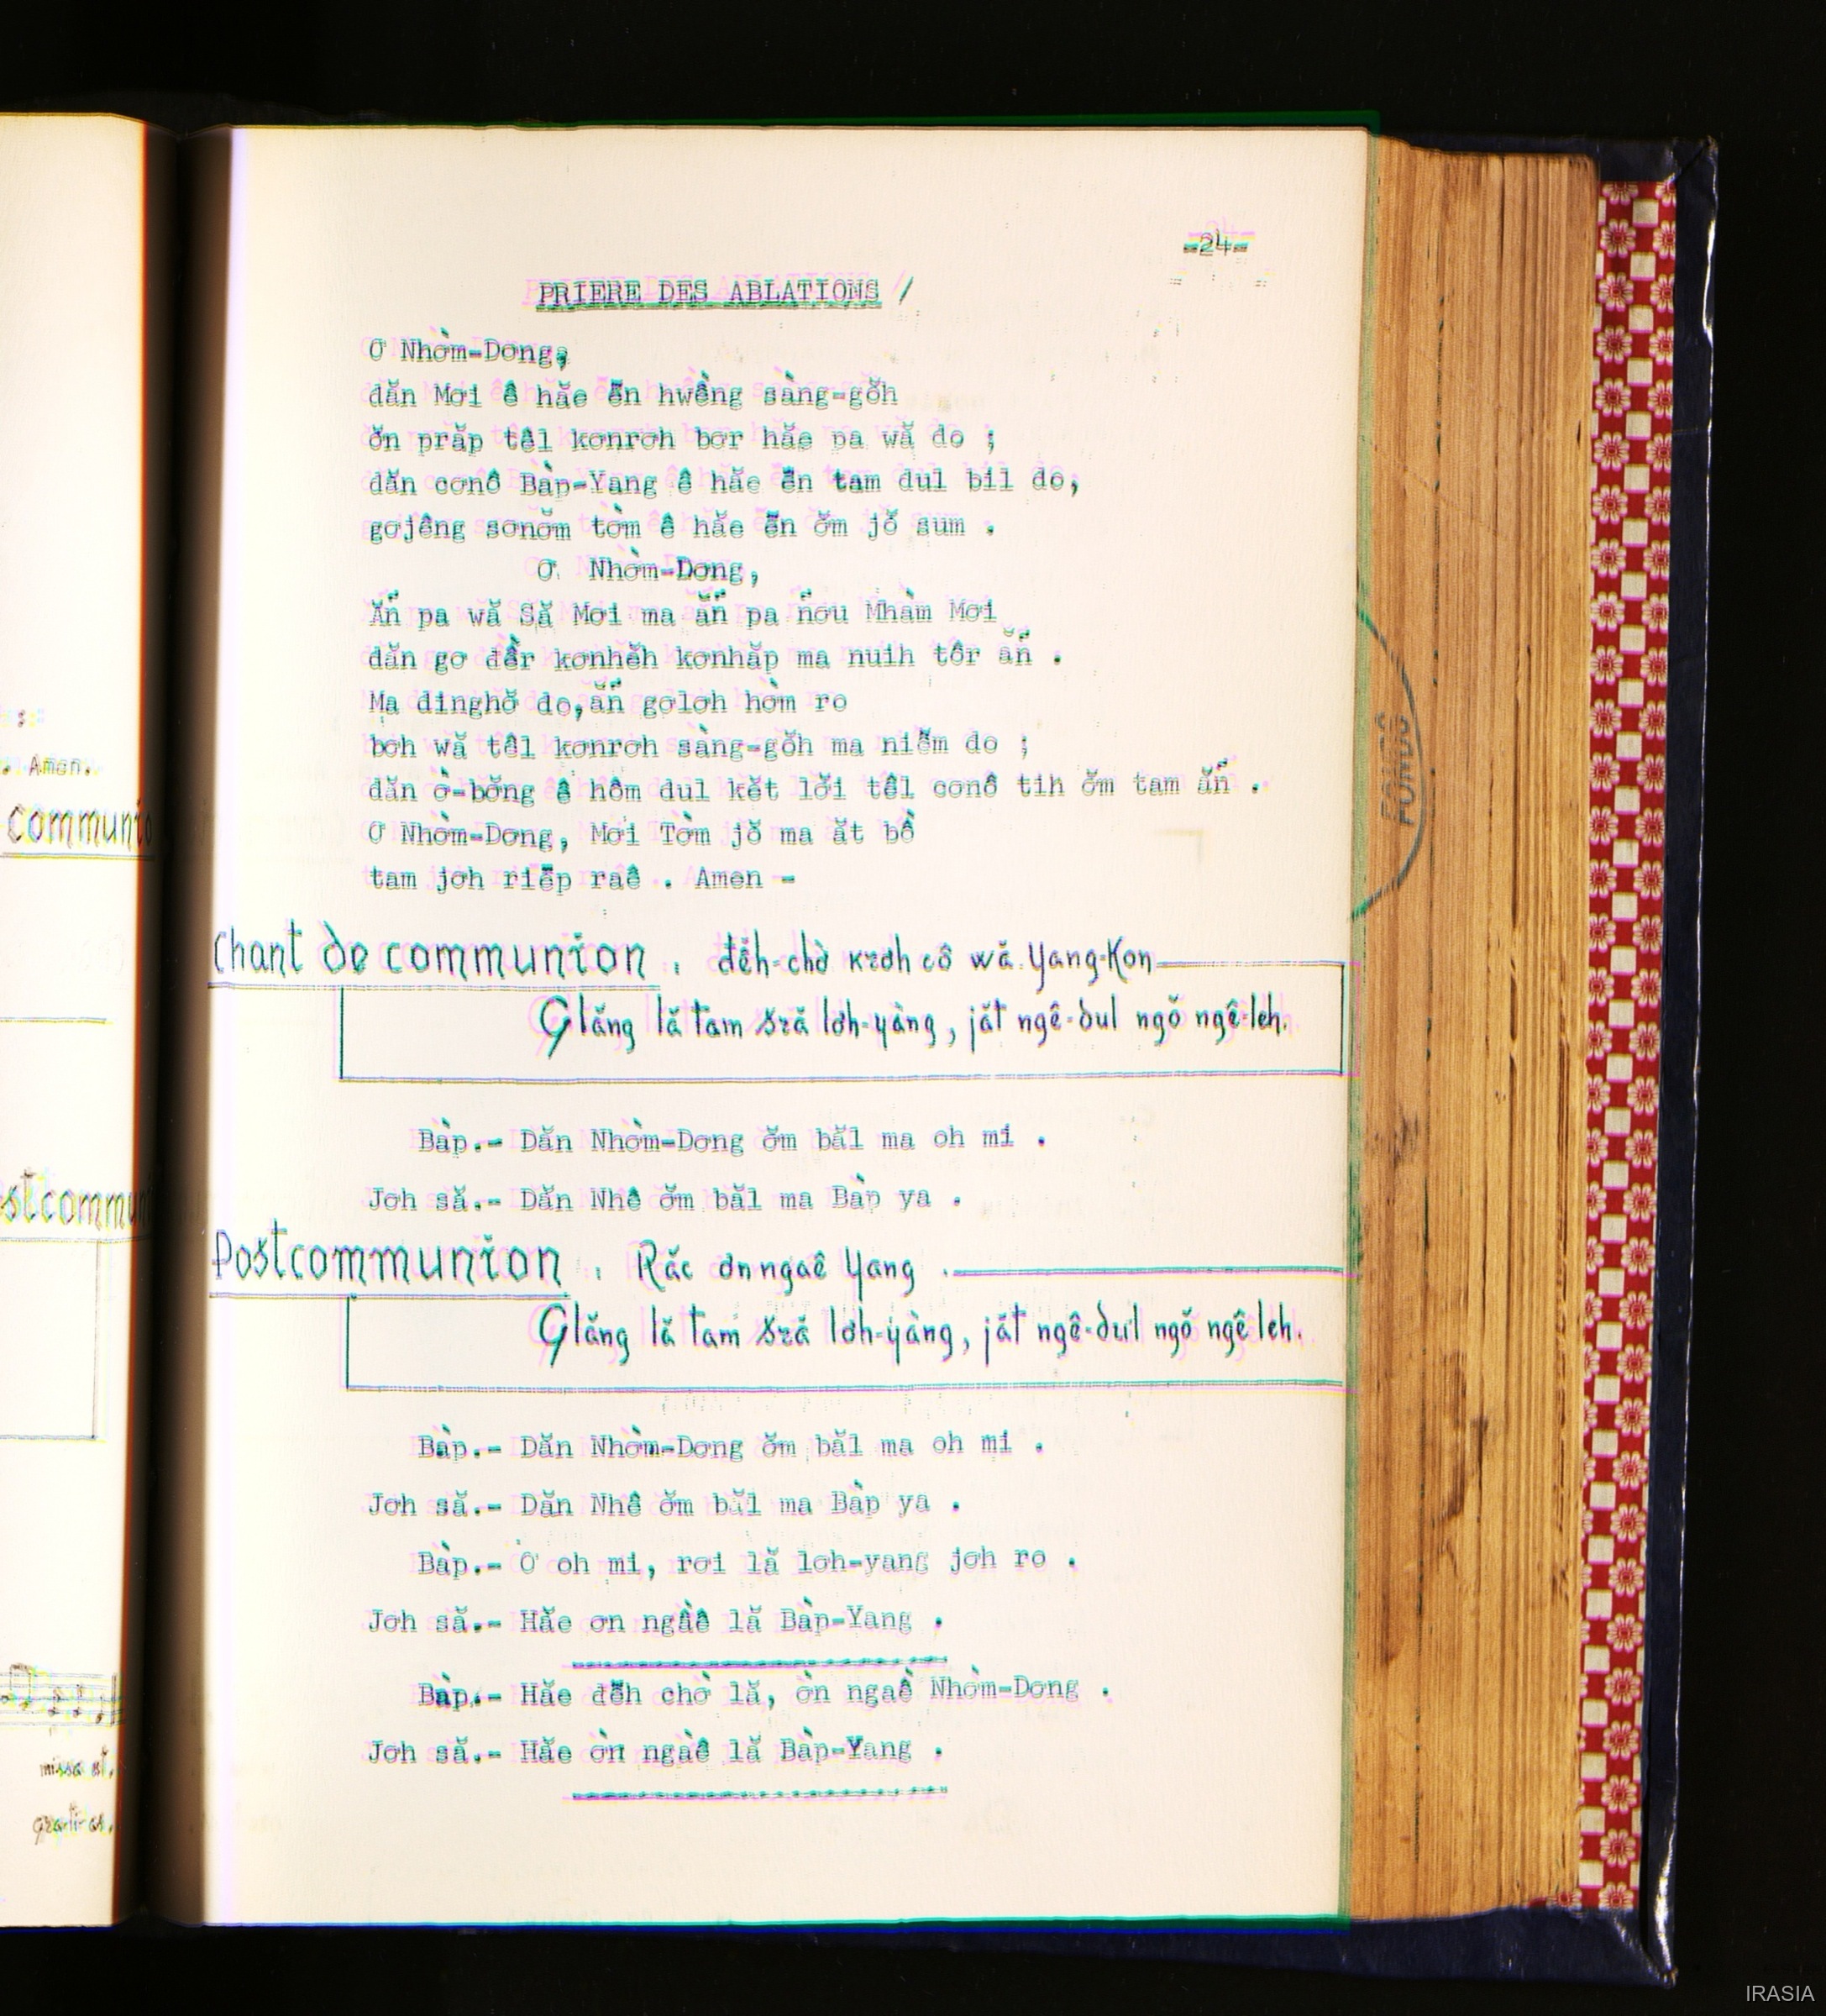 -24-
PRIERE DES ABLATIONS /
Ơ Nhờm-Dơng,
dăn Mơi ê hăe ĕn hwềng sàng-gŏh
ơ̆n prăp têl kơnrơh bơr hăe pa wă do ;
dăn cơnô Bàp-Yang ê hăe ĕn tam dul bil do,
gơjêng sơnơ̆m tờm ê hăe ĕn ơ̆m jŏ sum .
Ơ Nhờm-Dơng,
Ăñ pa wă Să Mơi ma ăñ pa ñơu Mhàm Mơi
dăn gơ dềr kơnhĕh kơnhăp ma nuih tôr ăñ .
Ma dinghơ̆ do, ăñ gơlơh hờm ro
bơh wă têl kơnrơh sàng-gŏh ma niĕm do ;
dăn ờ-bơ̆ng ê hôm dul kĕt lơ̆i têl cơnô tih ơ̆m tam ăñ .
Ơ Nhờm-Dơng, Mơi Tờm jŏ ma ăt bồ
tam jơh riĕp raê . Amen -
Chant de communion . dĕh-chờ krơh cô wă Yang-Kon
Glăng lă tam sră lơh-yàng, jăt ngê-dul ngŏ ngê-leh.
Bàp.- Dăn Nhờm-Dơng ơ̆m băl ma oh mi .
Jơh să.- Dăn Nhê ơ̆m băl ma Bàp ya .
Postcommunion . Răc ơn ngaê Yang .
Glăng lă tam sră lơh-yàng, jăt ngê-dul ngŏ ngê leh.
Bàp.- Dăn Nhờm-Dơng ơ̆m băl ma oh mi .
Jơh să.- Dăn Nhê ơ̆m băl ma Bàp ya .
Bàp.- Ơ oh mi, rơi lă lơh-yang jơh ro .
Jơh să.- Hăe ơn ngàê lă Bàp-Yang .
Bàp.- Hăe dĕh chờ lă, ờn ngaề Nhờm-Dơng .
Jơh să.- Hăe ờn ngàê lă Bàp-Yang .
. Amen.
communio
missa est.
gra-ti-as.
FONDS
IRASIA